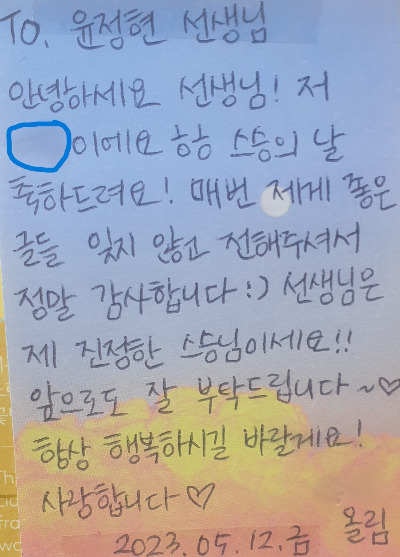 To. 윤정현 선생님
안녕하세요 선생님! 저
이에요 ㅎㅎ 스승의 날
축하드려요! 매번 제게 좋은
글들 잊지 않고 전해주셔서
정말 감사합니다 :) 선생님은
제 진정한 스승님이세요!!
앞으로도 잘 부탁드립니다~♡
항상 행복하시길 바랄게요!
사랑합니다♡
2023.05.12.금 올림